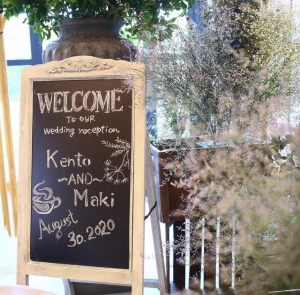 WELCOME
TO OUR
wedding reception
Kento
~AND~
Maki
August
30.2020